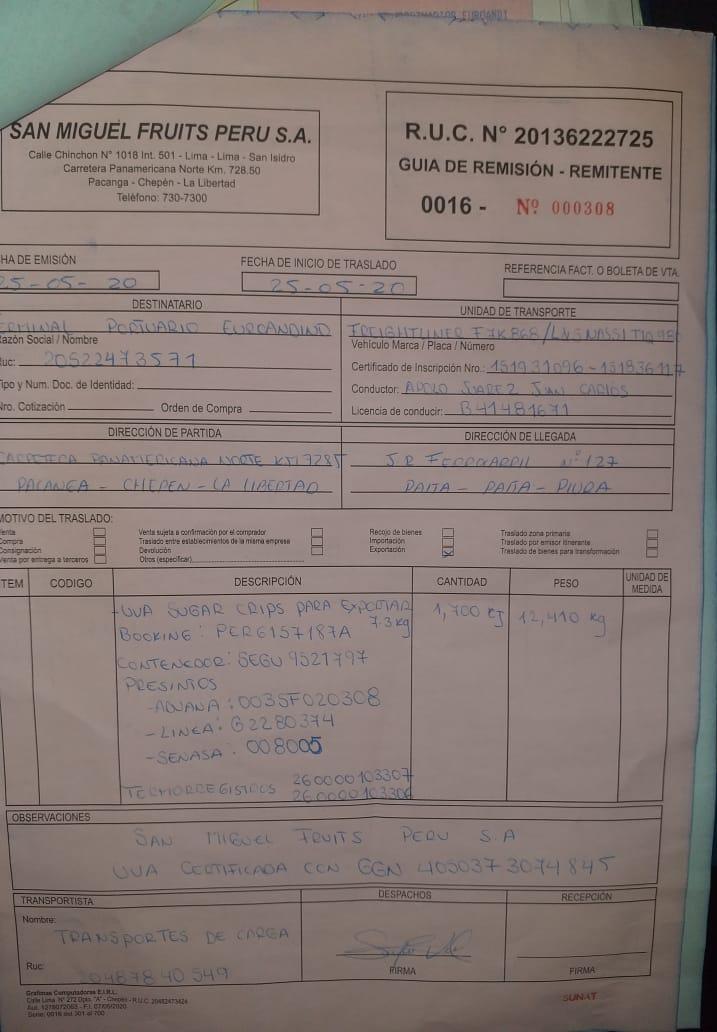 SAN MIGUEL FRUITS PERU S.A.
Calle Chinchon N° 1018 Int. 501 - Lima - Lima - San Isidro
Carretera Panamericana Norte Km. 728.50
Pacanga - Chepén - La Libertad
Teléfono: 730-7300
R.U.C. N° 20136222725
GUIA DE REMISIÓN - REMITENTE
0016 - Nº 000308
HA DE EMISIÓN
25-05-20
FECHA DE INICIO DE TRASLADO
25-05-20
REFERENCIA FACT. O BOLETA DE VTA.
DESTINATARIO
TERMINAL PORTUARIO EUROANDINO
Razón Social / Nombre
Ruc: 20522473571
Tipo y Num. Doc. de Identidad:
Nro. Cotización Orden de Compra
UNIDAD DE TRANSPORTE
FREIGHTLINER
Vehículo Marca / Placa / Número
Certificado de Inscripción Nro.: 151931096 -
Conductor: APOLO JUAREZ JUAN CARLOS
Licencia de conducir: B41481671
DIRECCIÓN DE PARTIDA
CARRETERA PANAMERICANA NORTE
PACANGA - CHEPEN - LA LIBERTAD
DIRECCIÓN DE LLEGADA
JR FERROCARRIL Nº 127
PAITA - PAITA - PIURA
MOTIVO DEL TRASLADO:
Venta
Compra
Consignación
Venta por entrega a terceros
Venta sujeta a confirmación por el comprador
Traslado entre establecimientos de la misma empresa
Devolución
Otros (especificar)
Recojo de bienes
Importación
Exportación
Traslado zona primaria
Traslado por emisor itinerante
Traslado de bienes para transformación
TEM CODIGO DESCRIPCIÓN CANTIDAD PESO UNIDAD DE MEDIDA
- UVA SUGAR CRIPS PARA EXPOTAR 1,700 CJ 12,410 kg
7.3 kg
BOOKING: PERG157187A
CONTENEDOR: SEGU 9521797
PRESINTOS
- ADUANA: 0035F020308
- LINEA: G2280374
- SENASA: 008005
TERMORREGISTROS 260000103307
OBSERVACIONES
SAN MIGUEL FRUITS PERU S.A
UVA CERTIFICADA CON GGN 4050373074845
TRANSPORTISTA
Nombre:
TRANSPORTES DE CARGA
Ruc: 20487840549
DESPACHOS
FIRMA
RECEPCIÓN
FIRMA
Grafimas Computadoras E.I.R.L.
Calle Lima N° 272 Dpto. "A" - Chepén - R.U.C. 20482473424
Serie: 0016 del 301 al 700
SUNAT